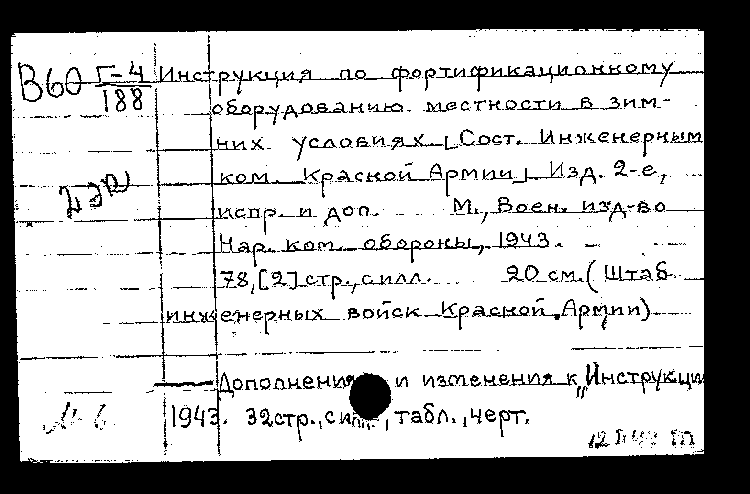 В60 Г-4/188 Инструкция по фортификационному
оборудованию местности в зим-
них условиях. [Сост. Инженерным
ком. Красной Армии]. Изд. 2-е,
испр. и доп. М., Воен. изд-во
Нар. ком. обороны, 1943. –
78, [2] стр., с илл. 20 см. (Штаб
инженерных войск Красной Армии).
Дополнения и изменения к „Инструкци
1943. 32 стр., с илл., табл., черт.